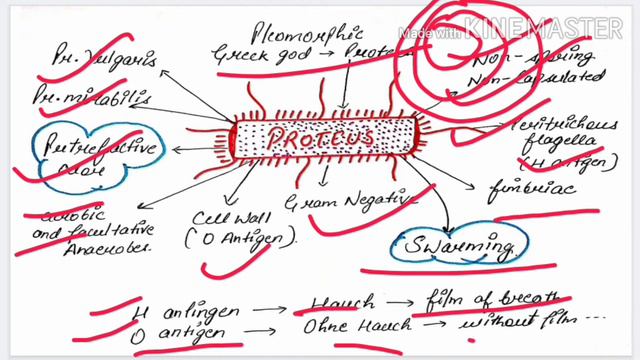 Made with KINEMASTER
Pleomorphic
Greek god → Proteus
Pr. Vulgaris
Non-sporing
Non-Capsulated
Pr. mirabilis
PROTEUS
Peritrichous
flagella
(H antigen)
Putrefactive
odor
fimbriae
Gram Negative
Cell Wall
(O Antigen)
Aerobic
and facultative
Anaerobes
Swarming
H antingen → Hauch → film of breath
O antigen → Ohne Hauch → without film...